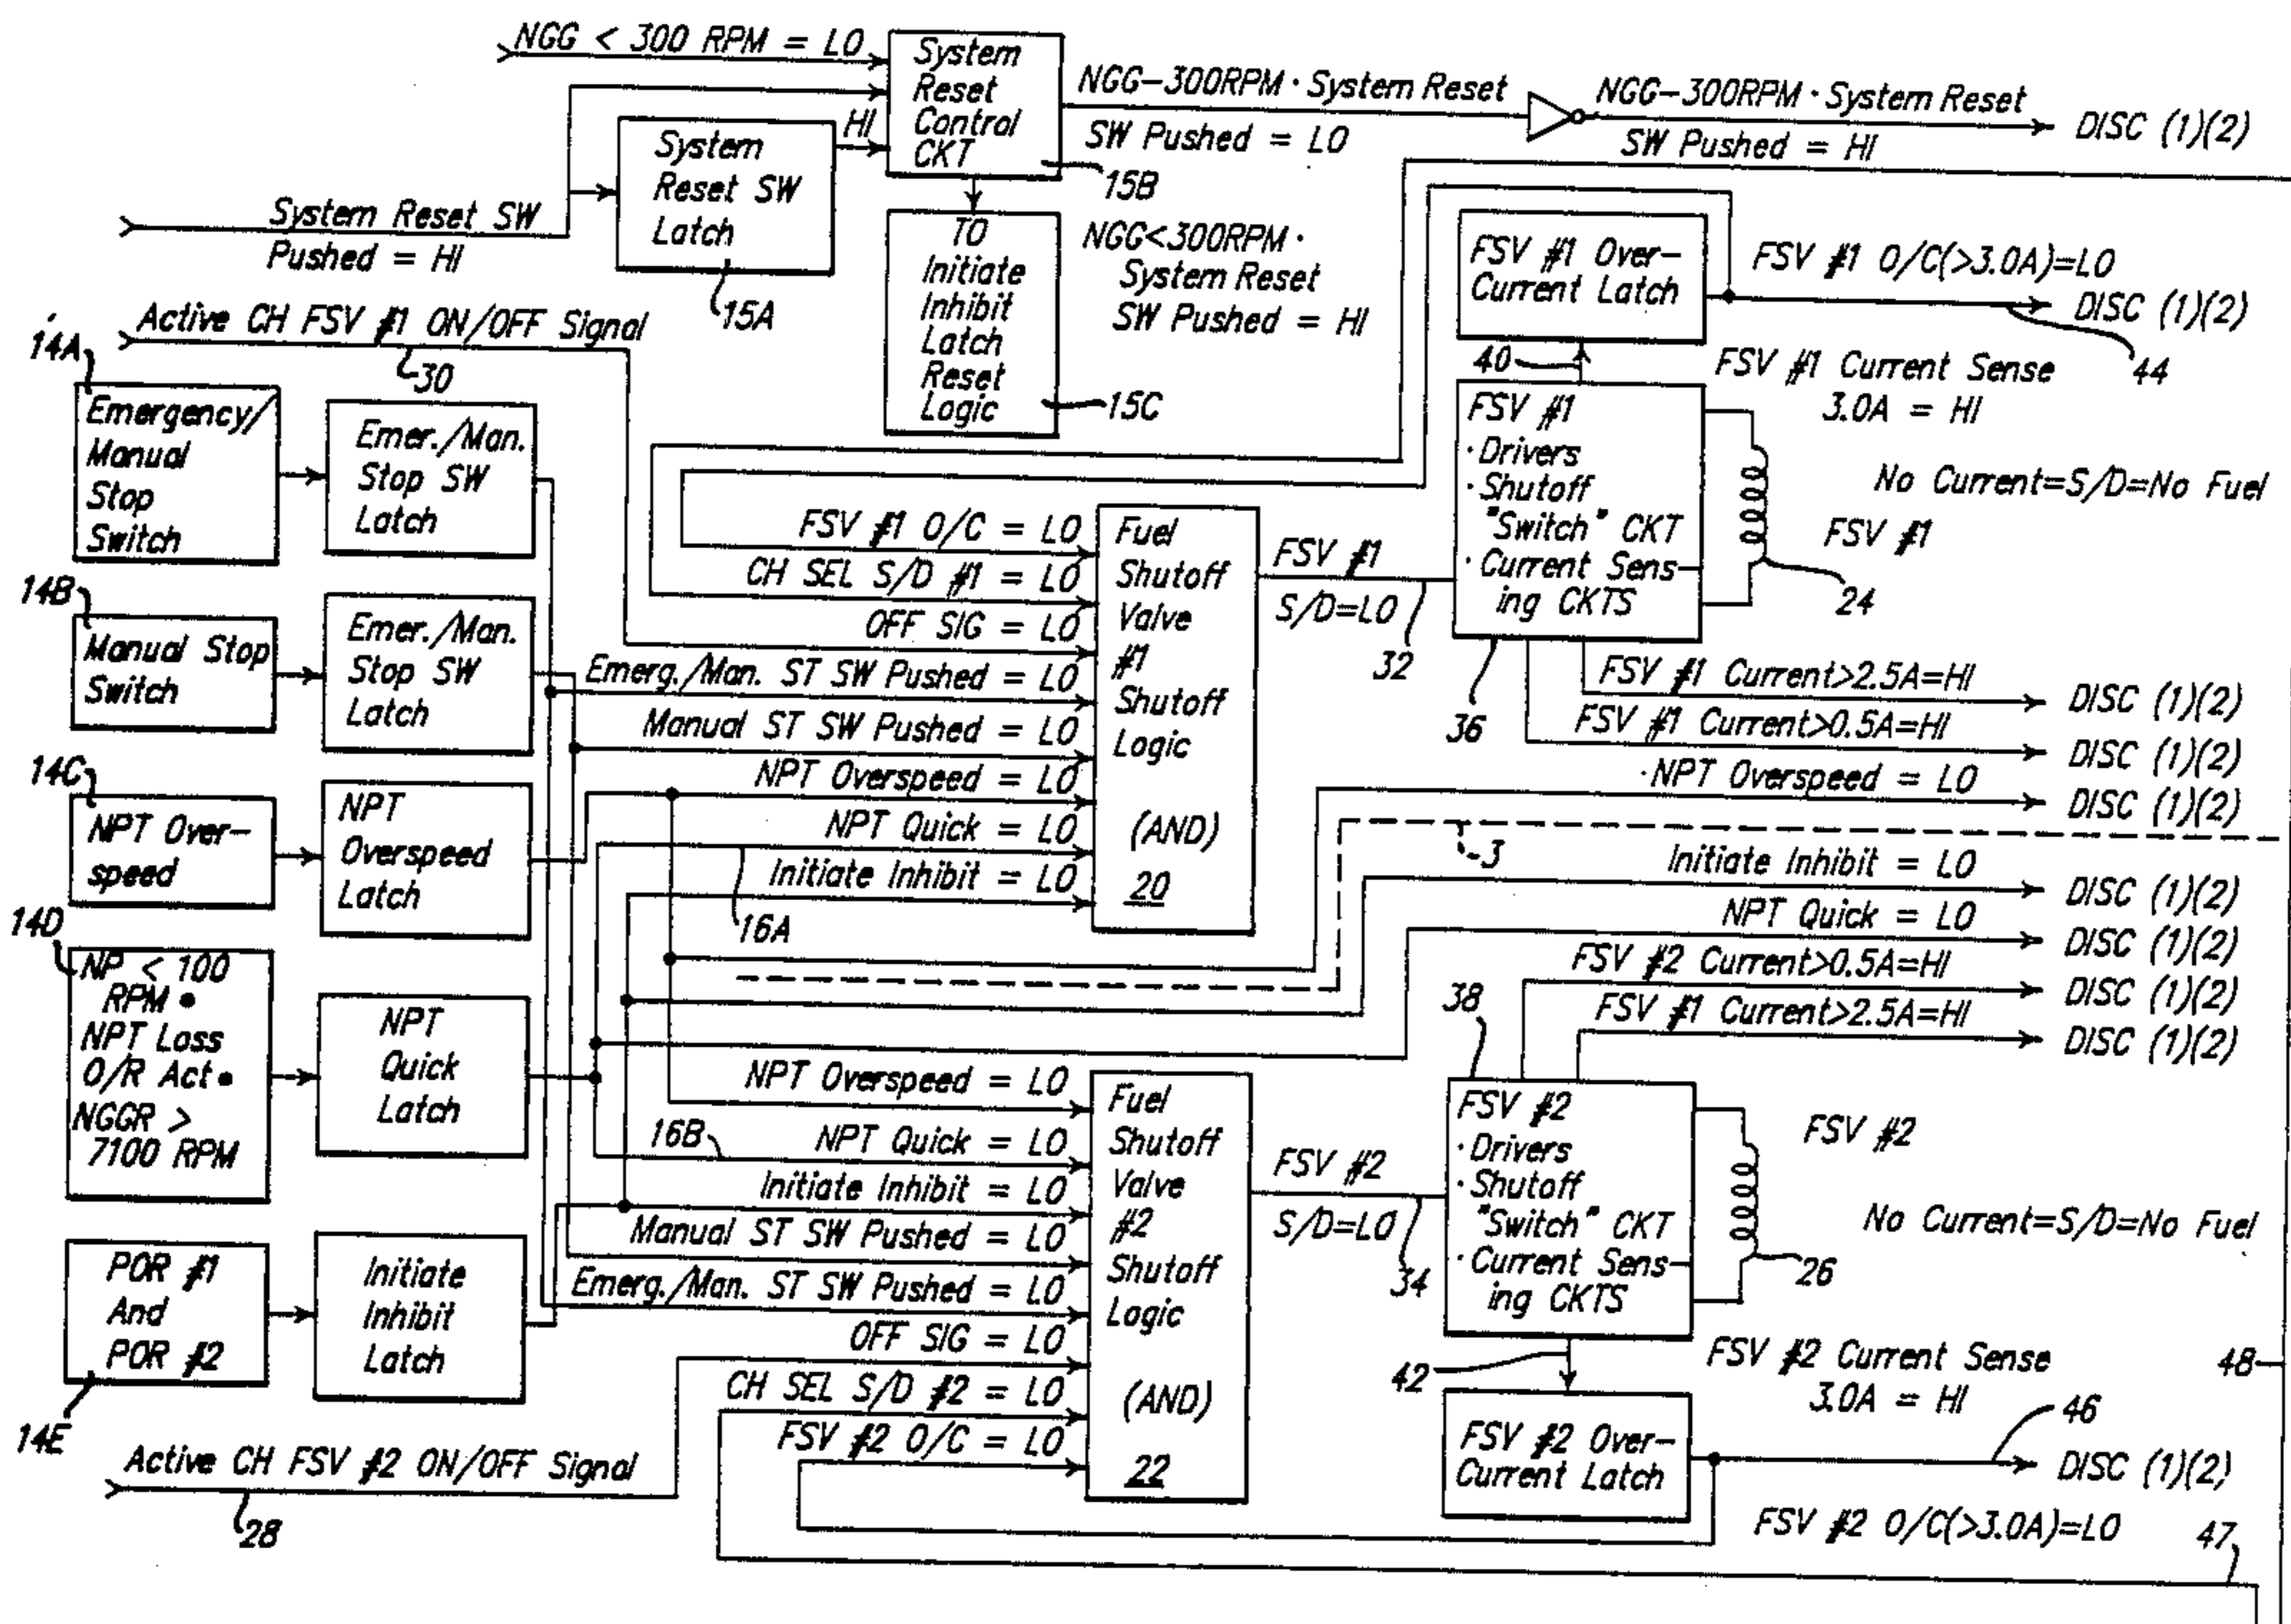 NGG < 300 RPM = LO
System
Reset
Control
CKT
15B
NGG-300RPM · System Reset
SW Pushed = LO
NGG-300RPM · System Reset
SW Pushed = HI
DISC (1)(2)
HI
System
Reset SW
Latch
15A
System Reset SW
Pushed = HI
TO
Initiate
Inhibit
Latch
Reset
Logic
15C
NGG<300RPM ·
System Reset
SW Pushed = HI
FSV #1 Over-
Current Latch
FSV #1 O/C(>3.0A)=LO
DISC (1)(2)
44
40
FSV #1 Current Sense
3.0A = HI
Active CH FSV #1 ON/OFF Signal
30
14A
Emergency/
Manual
Stop
Switch
Emer./Man.
Stop SW
Latch
14B
Manual Stop
Switch
Emer./Man.
Stop SW
Latch
14C
NPT Over-
speed
NPT
Overspeed
Latch
14D
NP < 100
RPM •
NPT Loss
O/R Act •
NGGR >
7100 RPM
NPT
Quick
Latch
POR #1
And
POR #2
14E
Initiate
Inhibit
Latch
Active CH FSV #2 ON/OFF Signal
28
FSV #1 O/C = LO
CH SEL S/D #1 = LO
OFF SIG = LO
Emerg./Man. ST SW Pushed = LO
Manual ST SW Pushed = LO
NPT Overspeed = LO
NPT Quick = LO
Initiate Inhibit = LO
16A
Fuel
Shutoff
Valve
#1
Shutoff
Logic
(AND)
20
FSV #1
S/D=LO
32
FSV #1
· Drivers
· Shutoff
"Switch" CKT
· Current Sens-
ing CKTS
36
No Current=S/D=No Fuel
FSV #1
24
FSV #1 Current>2.5A=HI
DISC (1)(2)
FSV #1 Current>0.5A=HI
DISC (1)(2)
·NPT Overspeed = LO
DISC (1)(2)
3
Initiate Inhibit = LO
DISC (1)(2)
NPT Quick = LO
DISC (1)(2)
FSV #2 Current>0.5A=HI
DISC (1)(2)
FSV #1 Current>2.5A=HI
DISC (1)(2)
38
NPT Overspeed = LO
16B
NPT Quick = LO
Initiate Inhibit = LO
Manual ST SW Pushed = LO
Emerg./Man. ST SW Pushed = LO
OFF SIG = LO
CH SEL S/D #2 = LO
FSV #2 O/C = LO
Fuel
Shutoff
Valve
#2
Shutoff
Logic
(AND)
22
FSV #2
S/D=LO
34
FSV #2
· Drivers
· Shutoff
"Switch" CKT
· Current Sens-
ing CKTS
FSV #2
No Current=S/D=No Fuel
26
42
FSV #2 Current Sense
3.0A = HI
48
FSV #2 Over-
Current Latch
46
DISC (1)(2)
FSV #2 O/C(>3.0A)=LO
47